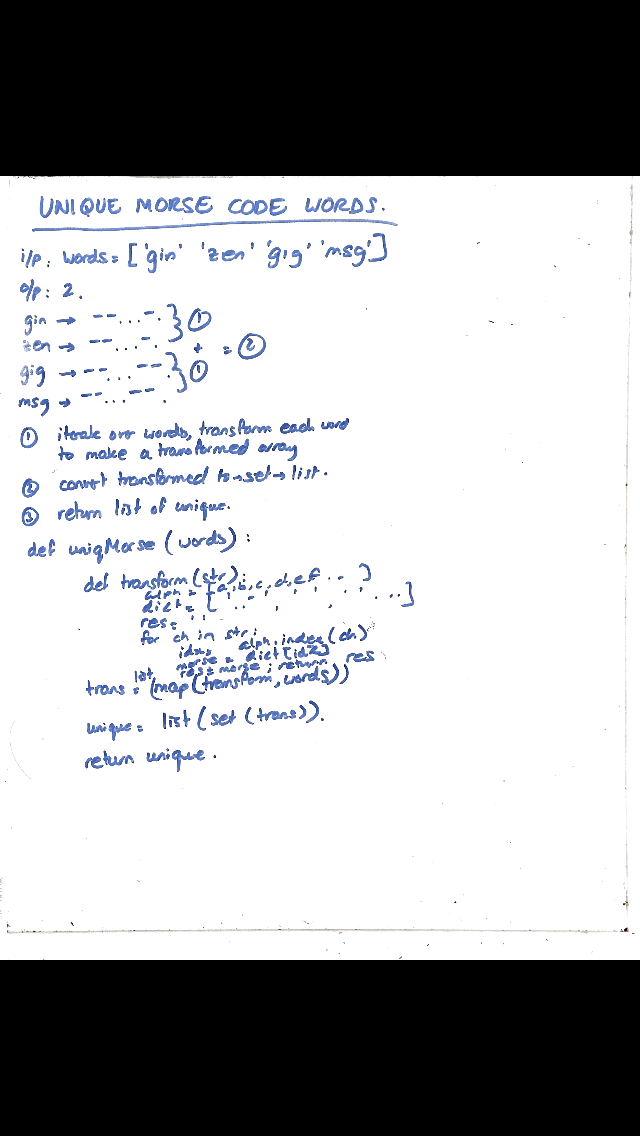 UNIQUE MORSE CODE WORDS.
i/p: words = ['gin' 'zen' 'gig' 'msg']
o/p: 2.
gin → --...-. } ①
zen → --...-. + = ②
gig → --...--. } ①
msg → --...--.
① iterate over words, transform each word
to make a transformed array
② convert transformed to → set → list.
③ return list of unique.
def uniqMorse (words) :
def transform (str):
alph = [a, b, c, d, e f .. ]
dict = [
res = ' '
for ch in str:
idx = alph.index (ch)
morse = dict [idx]
res = morse ; return res
trans = list (map (transform, words))
unique = list (set (trans)).
return unique.